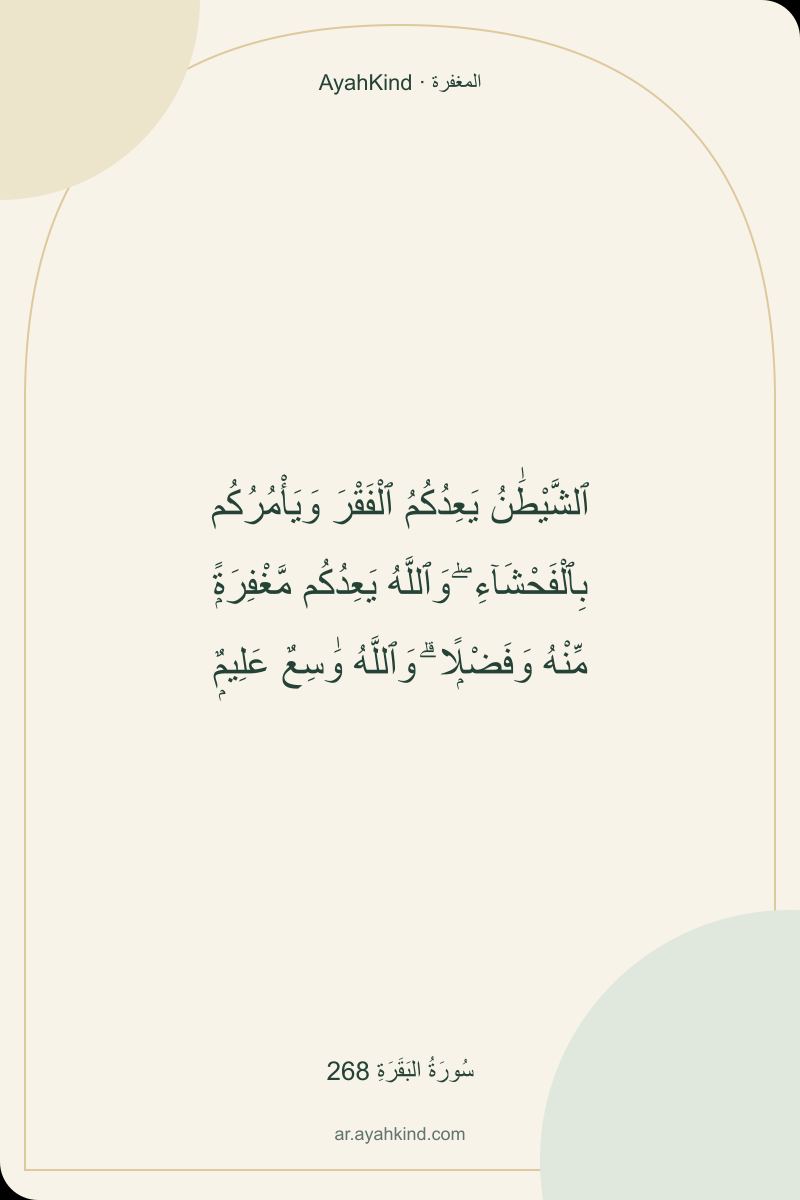 AyahKind · المغفرة
ٱلشَّيْطَٰنُ يَعِدُكُمُ ٱلْفَقْرَ وَيَأْمُرُكُم
بِٱلْفَحْشَآءِ ۖ وَٱللَّهُ يَعِدُكُم مَّغْفِرَةًۭ
مِّنْهُ وَفَضْلًۭا ۗ وَٱللَّهُ وَٰسِعٌ عَلِيمٌۭ
سُورَةُ البَقَرَةِ 268
ar.ayahkind.com